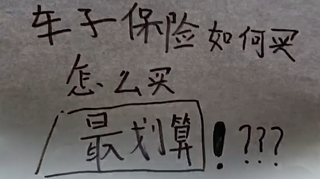 车子保险如何买
怎么买
最划算!???